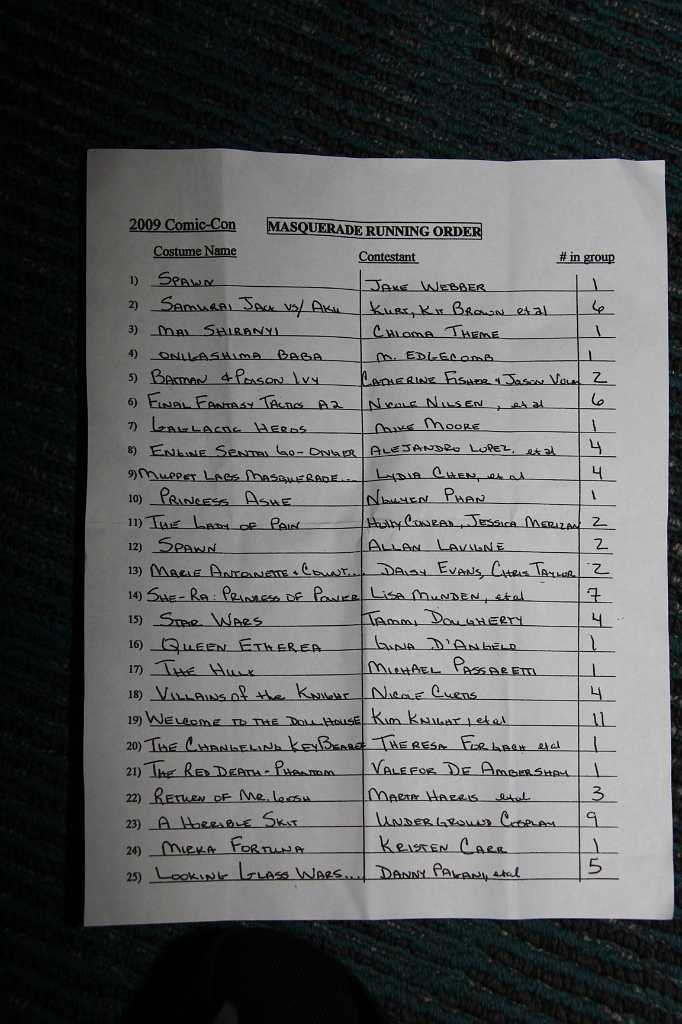 2009 Comic-Con MASQUERADE RUNNING ORDER
Costume Name Contestant # in group
1) SPAWN JAKE WEBBER 1
2) SAMURAI JACK VS/ AKU KURT, KIT BROWN et al 6
3) MAI SHIRANYI CHIOMA THEME 1
4) ONIKASHIMA BABA M. EDGECOMB 1
5) BATMAN & POISON IVY CATHERINE FISHER & JASON 2
6) FINAL FANTASY TACTICS A2 NICOLE NILSEN, et al 6
7) GALLACTIC HEROS MIKE MOORE 1
8) ENGINE SENTAI GO-ONGER ALEJANDRO LOPEZ, et al 4
9) MUPPET LABS MASQUERADE... LYDIA CHEN, et al 4
10) PRINCESS ASHE NGUYEN PHAN 1
11) THE LADY OF PAIN HOLLY CONRAD, JESSICA MERIZAN 2
12) SPAWN ALLAN LAVIGNE 2
13) MARIE ANTOINETTE & COUNT... DAISY EVANS, CHRIS TAYLOR 2
14) SHE-RA: PRINCESS OF POWER LISA MUNDEN, et al 7
15) STAR WARS TAMMI DOUGHERTY 4
16) QUEEN ETHEREA GINA D'ANGELO 1
17) THE HULK MICHAEL PASSARETTI 1
18) VILLAINS of the KNIGHT NICOLE CURTIS 4
19) WELCOME TO THE DOLL HOUSE KIM KNIGHT, et al 11
20) THE CHANGELING KEYBEARER THERESA et al 1
21) THE RED DEATH - PHANTOM VALEFOR DE AMBERSHAM 1
22) RETURN OF MR. GOSH MARTA HARRIS et al 3
23) A HORRIBLE SKIT UNDERGROUND COSPLAY 9
24) MIRKA FORTUNA KRISTEN CARR 1
25) LOOKING GLASS WARS.... DANNY PAGANI, et al 5